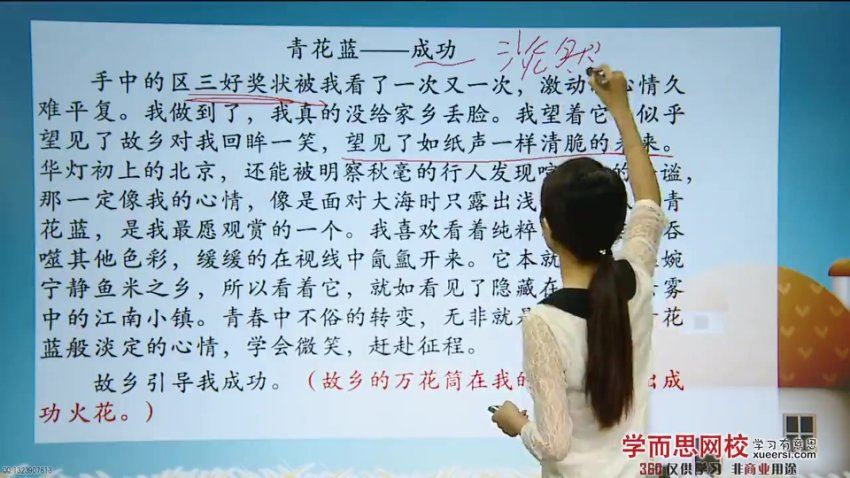 青花蓝——成功
手中的区三好奖状被我看了一次又一次，激动 心情久
难平复。我做到了，我真的没给家乡丢脸。我望着它 似乎
望见了故乡对我回眸一笑，望见了如纸声一样清脆的未来。
华灯初上的北京，还能被明察秋毫的行人发现 的 谧，
那一定像我的心情，像是面对大海时只露出浅 青
花蓝，是我最愿观赏的一个。我喜欢看着纯粹 吞
噬其他色彩，缓缓的在视线中氤氲开来。它本就 婉
宁静鱼米之乡，所以看着它，就如看见了隐藏在 雾
中的江南小镇。青春中不俗的转变，无非就是 花
蓝般淡定的心情，学会微笑，赶赴征程。
故乡引导我成功。（故乡的万花筒在我的 出成
功火花。）
学而思网校 学习有意思
xueersi.com
360仅供学习 非商业用途
QQ:1323907613